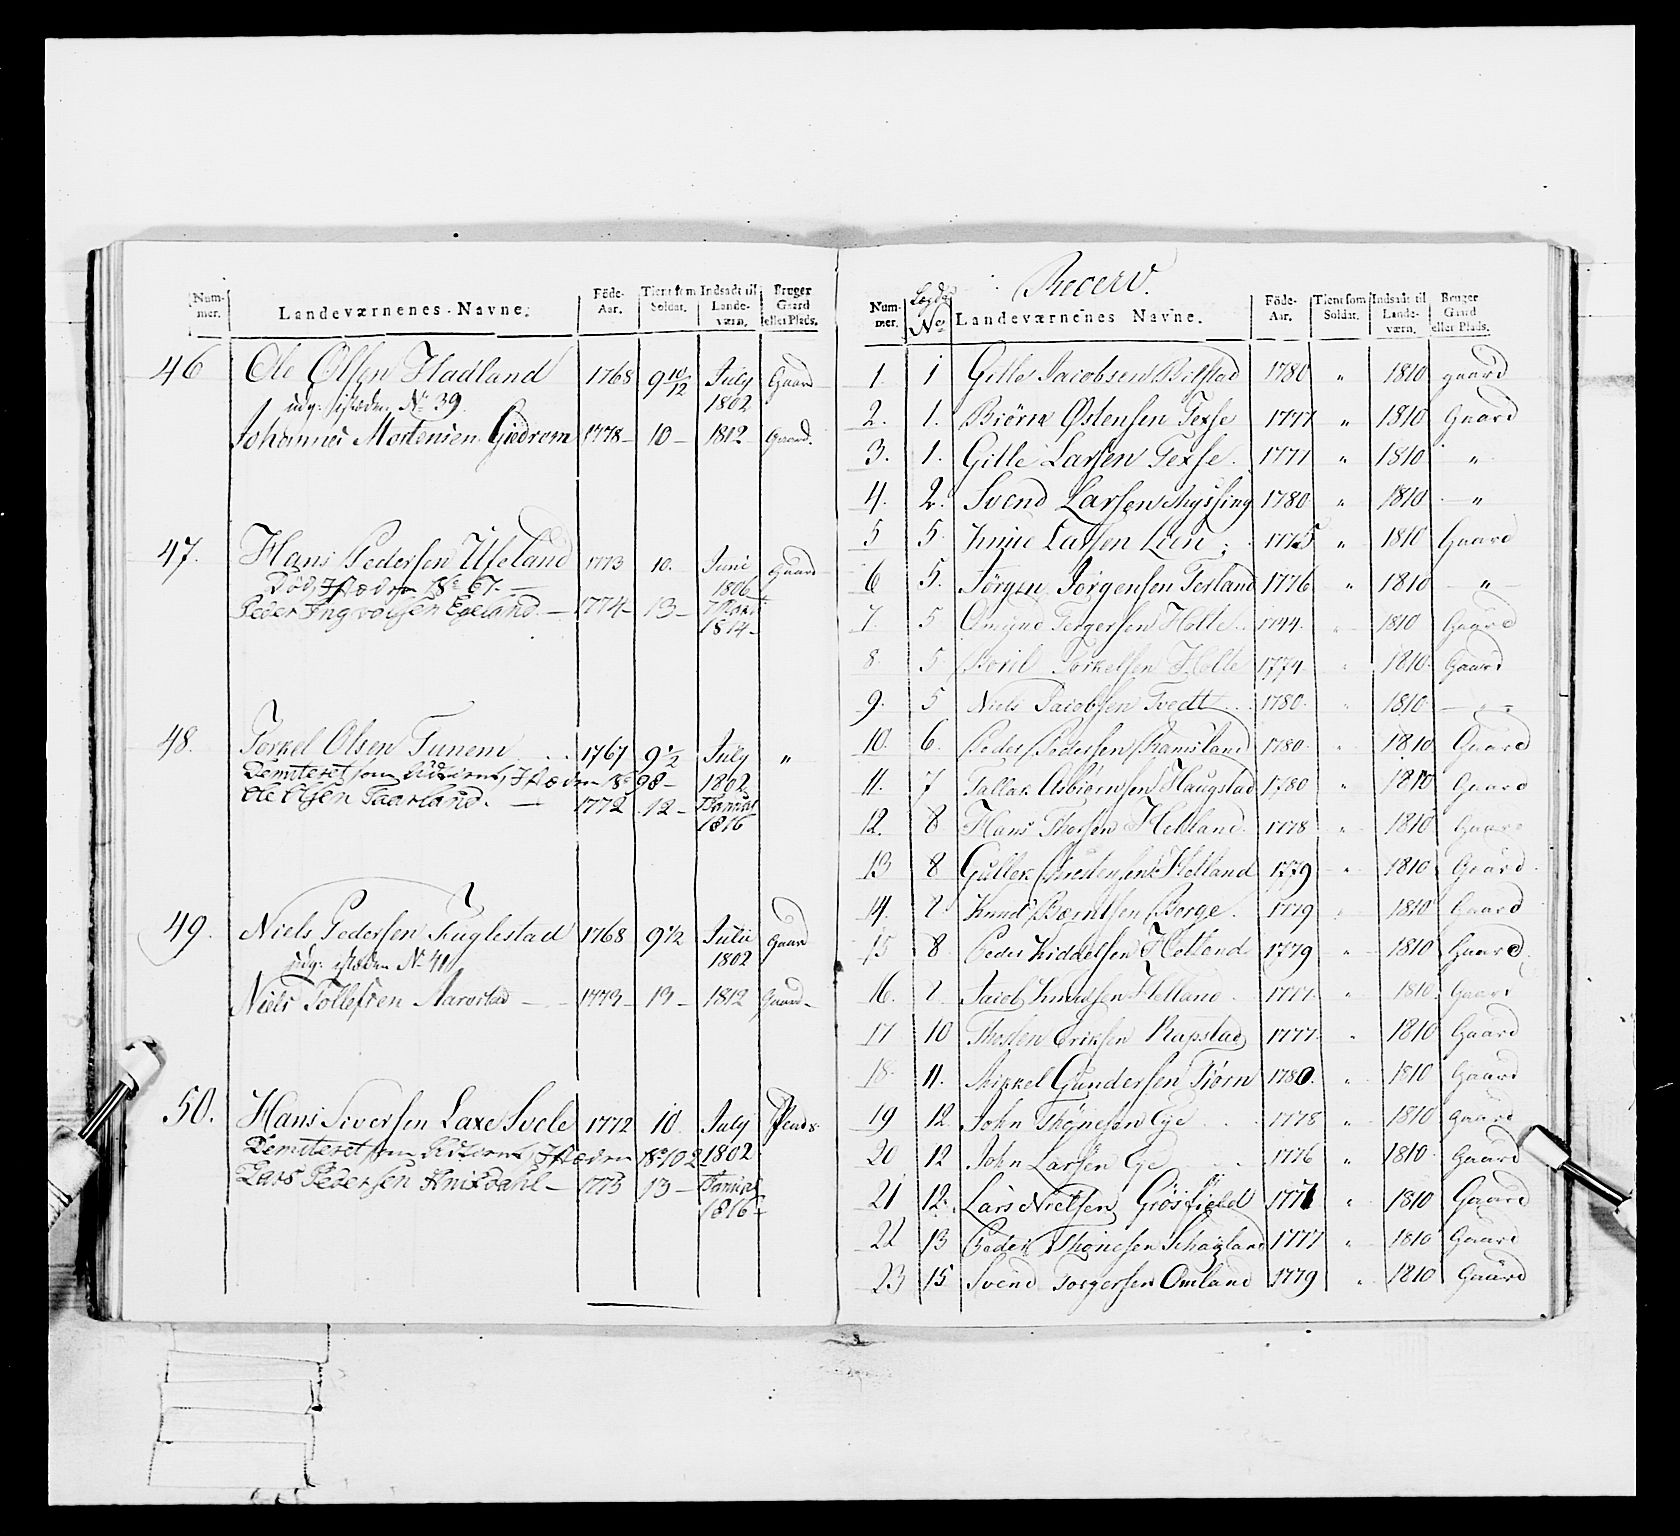 Num-mer. Landeværnenes Navne. Föde-Aar. Tient som Soldat. Indsadt til Lande-værn. Bruger Gaard eller Plads.
46 Ole Olsen Hadland 1768 9 10/12 July 1802 Gaard
udg: istæden No 39.
Johannes Mortensen Giedrem 1778 10 1812 Gaard.
47. Hans Pedersen Useland 1773 10. Juni 1806 Gaard
Død, Istæden No 67.
Peder Ingvolsen Egeland 1774 13 1814
48. Torkel Olsen Tunem 1767 9 1/2 July 1802 "
Demiteret som Istæden No 98
Ole Olsen Taarland. 1772 12 1816
49. Niels Pedersen Fuglestad 1768 9 1/2 Julii 1802 Gaard
udg: istæden No 41
Niels Tollefsen Aarrestad 1773 13 1812 Gaard
50. Hans Siversen Laxe Svele 1772 10 July 1802 Plads
Demiteret som Istæden No 102
Lars Pedersen 1773 13 1816
Recerv.
Num-mer. Lægds No Landeværnenes Navne. Föde-Aar. Tient som Soldat. Indsadt til Lande-værn. Bruger Gaard eller Plads.
1. 1 Gitle Jacobsen Bilstad 1780 " 1810 gaard
2. 1. Biørn Østensen Texse 1777 " 1810 Gaard
3. 1. Gitle Larsen Texse. 1777 " 1810 "
4. 2. Svend Larsen 1780 " 1810 "
5 5. Knud Larsen Lien 1775 " 1810 Gaard
6 5. Jørgen Jørgensen Torland 1776 " 1810 "
7. 5 Omund Tergersen Holte 1744 " 1810 Gaard
8. 5 Torkelsen Holte 1774 " 1810 Gaard
9. 5 Niels Jacobsen Tvedt 1780 " 1810 "
10. 6. Peder Pedersen Ramsland 1780 " 1810 Gaard
11. 7 Tallak Asbiørnsen Haugstad 1780 " 1810 Gaard
12. 8 Hans Thorsen Helland 1778 " 1810 Gaard
13 8 Gullek Helland 1779 " 1810 Gaard
14. 8 Knud Berntsen Berge. 1779 " 1810 Gaard
15 8 Peder Kiddelsen Helland 1779 " 1810 Gaard
16. 8 Jacob Knudsen Helland 1777 " 1810 Gaard
17 10 Thosten Eriksen Rapstad 1777 " 1810 Gaard
18. 11. Mikkel Gundersen Tiørn 1780. " 1810 Gaard
19 12. John Thønesøn Eje 1778 " 1810 Gaard
20 12 John Larsen Eje 1776 " 1810 Gaard
21 12. Lars Nielsen Grøsfield 1771 " 1810 Gaard
22 13 Peder Thønesen 1777 " 1810 Gaard
23 15 Svend Torgersen Omland 1779 " 1810 Gaard